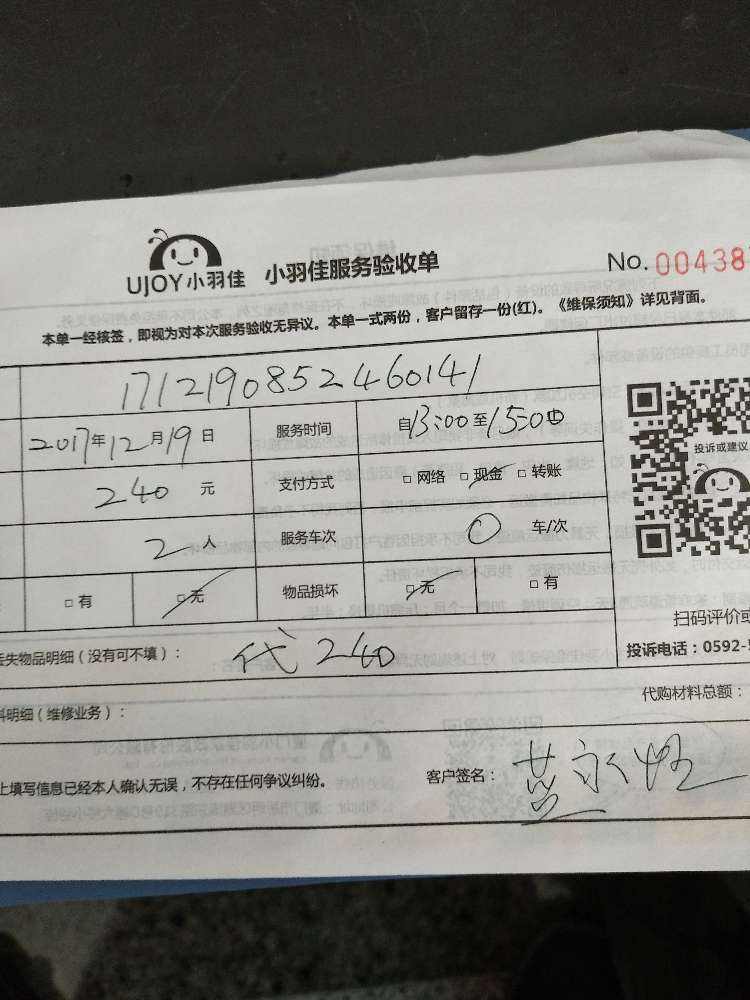 UJOY小羽佳 小羽佳服务验收单 No. 00438
本单一经核签，即视为对本次服务验收无异议。本单一式两份，客户留存一份(红)。《维保须知》详见背面。
1712190852460141
2017年12月19日 服务时间 自13:00至15:00
投诉或建议
240元 支付方式 □网络 □现金 □转账
2人 服务车次 0 车/次
□有 □无 物品损坏 □无 □有
扫码评价或
失物品明细（没有可不填）： 代240
投诉电话：0592-5
代购材料总额：
料明细（维修业务）：
上填写信息已经本人确认无误，不存在任何争议纠纷。 客户签名：